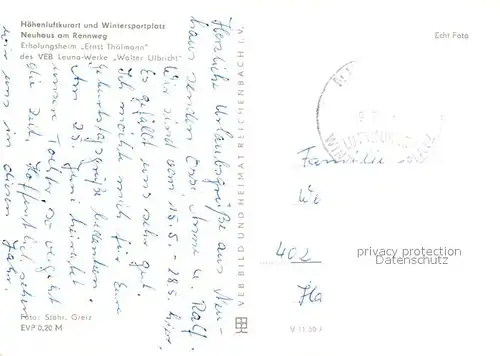 Höhenluftkurort und Wintersportplatz
Neuhaus am Rennweg
Erholungsheim „Ernst Thälmann"
des VEB Leuna-Werke „Walter Ulbricht"
Echt Foto
Herzliche Urlaubsgrüße aus Neu-
haus senden Euch, Anne u. Ralf.
Wir sind vom 15.5. - 28.5. hier.
Es gefällt uns sehr gut.
Ich möchte mich für Eure
Geburtstagsgrüße bedanken.
Am 25. Juni heiratet
unsere Tochter, so vergeht
die Zeit. Hoffentlich sehen
wir uns in diesem Jahr.
VEB BILD UND HEIMAT REICHENBACH i. V.
Familie
We
402
Ha
privacy protection
Datenschutz
Foto: Stöhr, Greiz
EVP 0,20 M
V 11 50